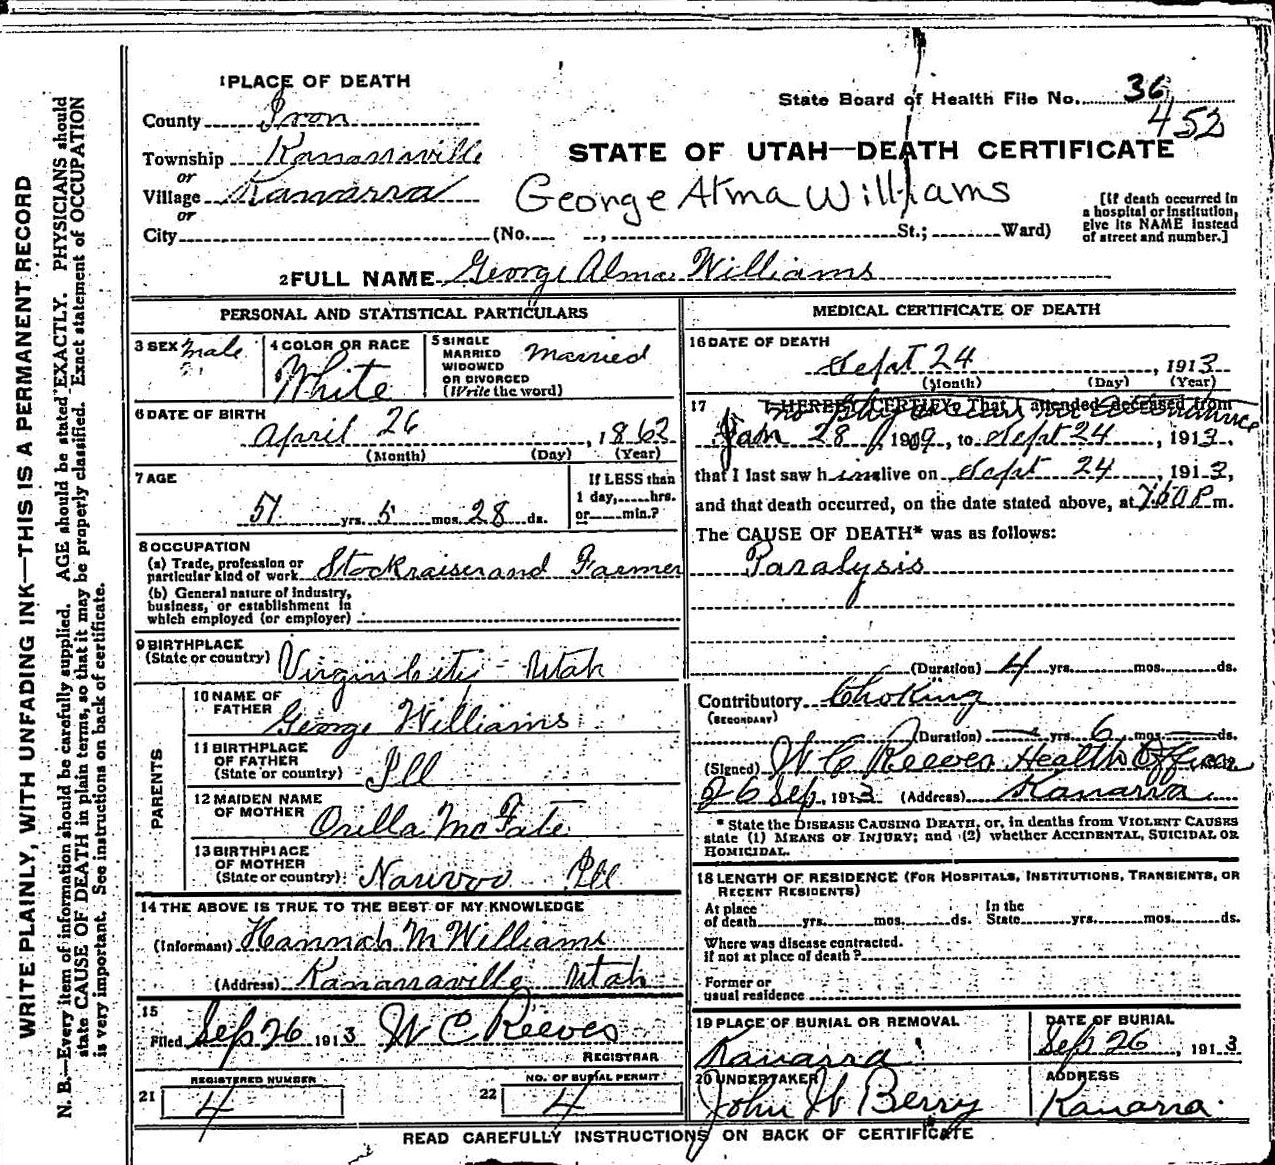 WRITE PLAINLY, WITH UNFADING INK—THIS IS A PERMANENT RECORD
N. B.—Every item of information should be carefully supplied. AGE should be stated EXACTLY. PHYSICIANS should
state CAUSE OF DEATH in plain terms, so that it may be properly classified. Exact statement of OCCUPATION
is very important. See instructions on back of certificate.
1 PLACE OF DEATH
State Board of Health File No. 36
452
County Iron
Township Kanarraville
or
STATE OF UTAH—DEATH CERTIFICATE
Village Kanarra
George Alma Williams
or
City (No. , St.; Ward)
[If death occurred in
a hospital or institution,
give its NAME instead
of street and number.]
2 FULL NAME George Alma Williams
PERSONAL AND STATISTICAL PARTICULARS
3 SEX male
4 COLOR OR RACE
White
5 SINGLE
MARRIED
WIDOWED
OR DIVORCED
(Write the word)
Married
6 DATE OF BIRTH
April 26, 1862
(Month) (Day) (Year)
7 AGE
51 yrs. 5 mos. 28 ds.
If LESS than
1 day, hrs.
or min.?
8 OCCUPATION
(a) Trade, profession or
particular kind of work Stockraiser and Farmer
(b) General nature of industry,
business, or establishment in
which employed (or employer)
9 BIRTHPLACE
(State or country) Virgin City - Utah
PARENTS
10 NAME OF
FATHER
George Williams
11 BIRTHPLACE
OF FATHER
(State or country) Ill
12 MAIDEN NAME
OF MOTHER
Orilla McFate
13 BIRTHPLACE
OF MOTHER
(State or country) Nauvoo Ill
14 THE ABOVE IS TRUE TO THE BEST OF MY KNOWLEDGE
(Informant) Hannah M Williams
(Address) Kanarraville Utah
15
Filed Sep 26 1913 W C Reeves
REGISTRAR
21 REGISTERED NUMBER
4
22 NO. OF BURIAL PERMIT
4
MEDICAL CERTIFICATE OF DEATH
16 DATE OF DEATH
Sept 24, 1913
(Month) (Day) (Year)
17 I HEREBY CERTIFY, That I attended deceased from
no Physician in attendance
Jan 28, 1909, to Sept 24, 1913,
that I last saw h im alive on Sept 24, 1913,
and that death occurred, on the date stated above, at P m.
The CAUSE OF DEATH* was as follows:
Paralysis
(Duration) 4 yrs. mos. ds.
Contributory Choking
(SECONDARY)
(Duration) yrs. 6 mos. ds.
(Signed) W C Reeves Health Officer
26 Sep, 1913 (Address) Kanarra
* State the DISEASE CAUSING DEATH, or, in deaths from VIOLENT CAUSES
state (1) MEANS OF INJURY; and (2) whether ACCIDENTAL, SUICIDAL OR
HOMICIDAL.
18 LENGTH OF RESIDENCE (FOR HOSPITALS, INSTITUTIONS, TRANSIENTS, OR
RECENT RESIDENTS)
At place
of death yrs. mos. ds.
In the
State yrs. mos. ds.
Where was disease contracted.
if not at place of death?
Former or
usual residence
19 PLACE OF BURIAL OR REMOVAL
Kanarra
DATE OF BURIAL
Sep 26, 1913
20 UNDERTAKER
John W Berry
ADDRESS
Kanarra.
READ CAREFULLY INSTRUCTIONS ON BACK OF CERTIFICATE